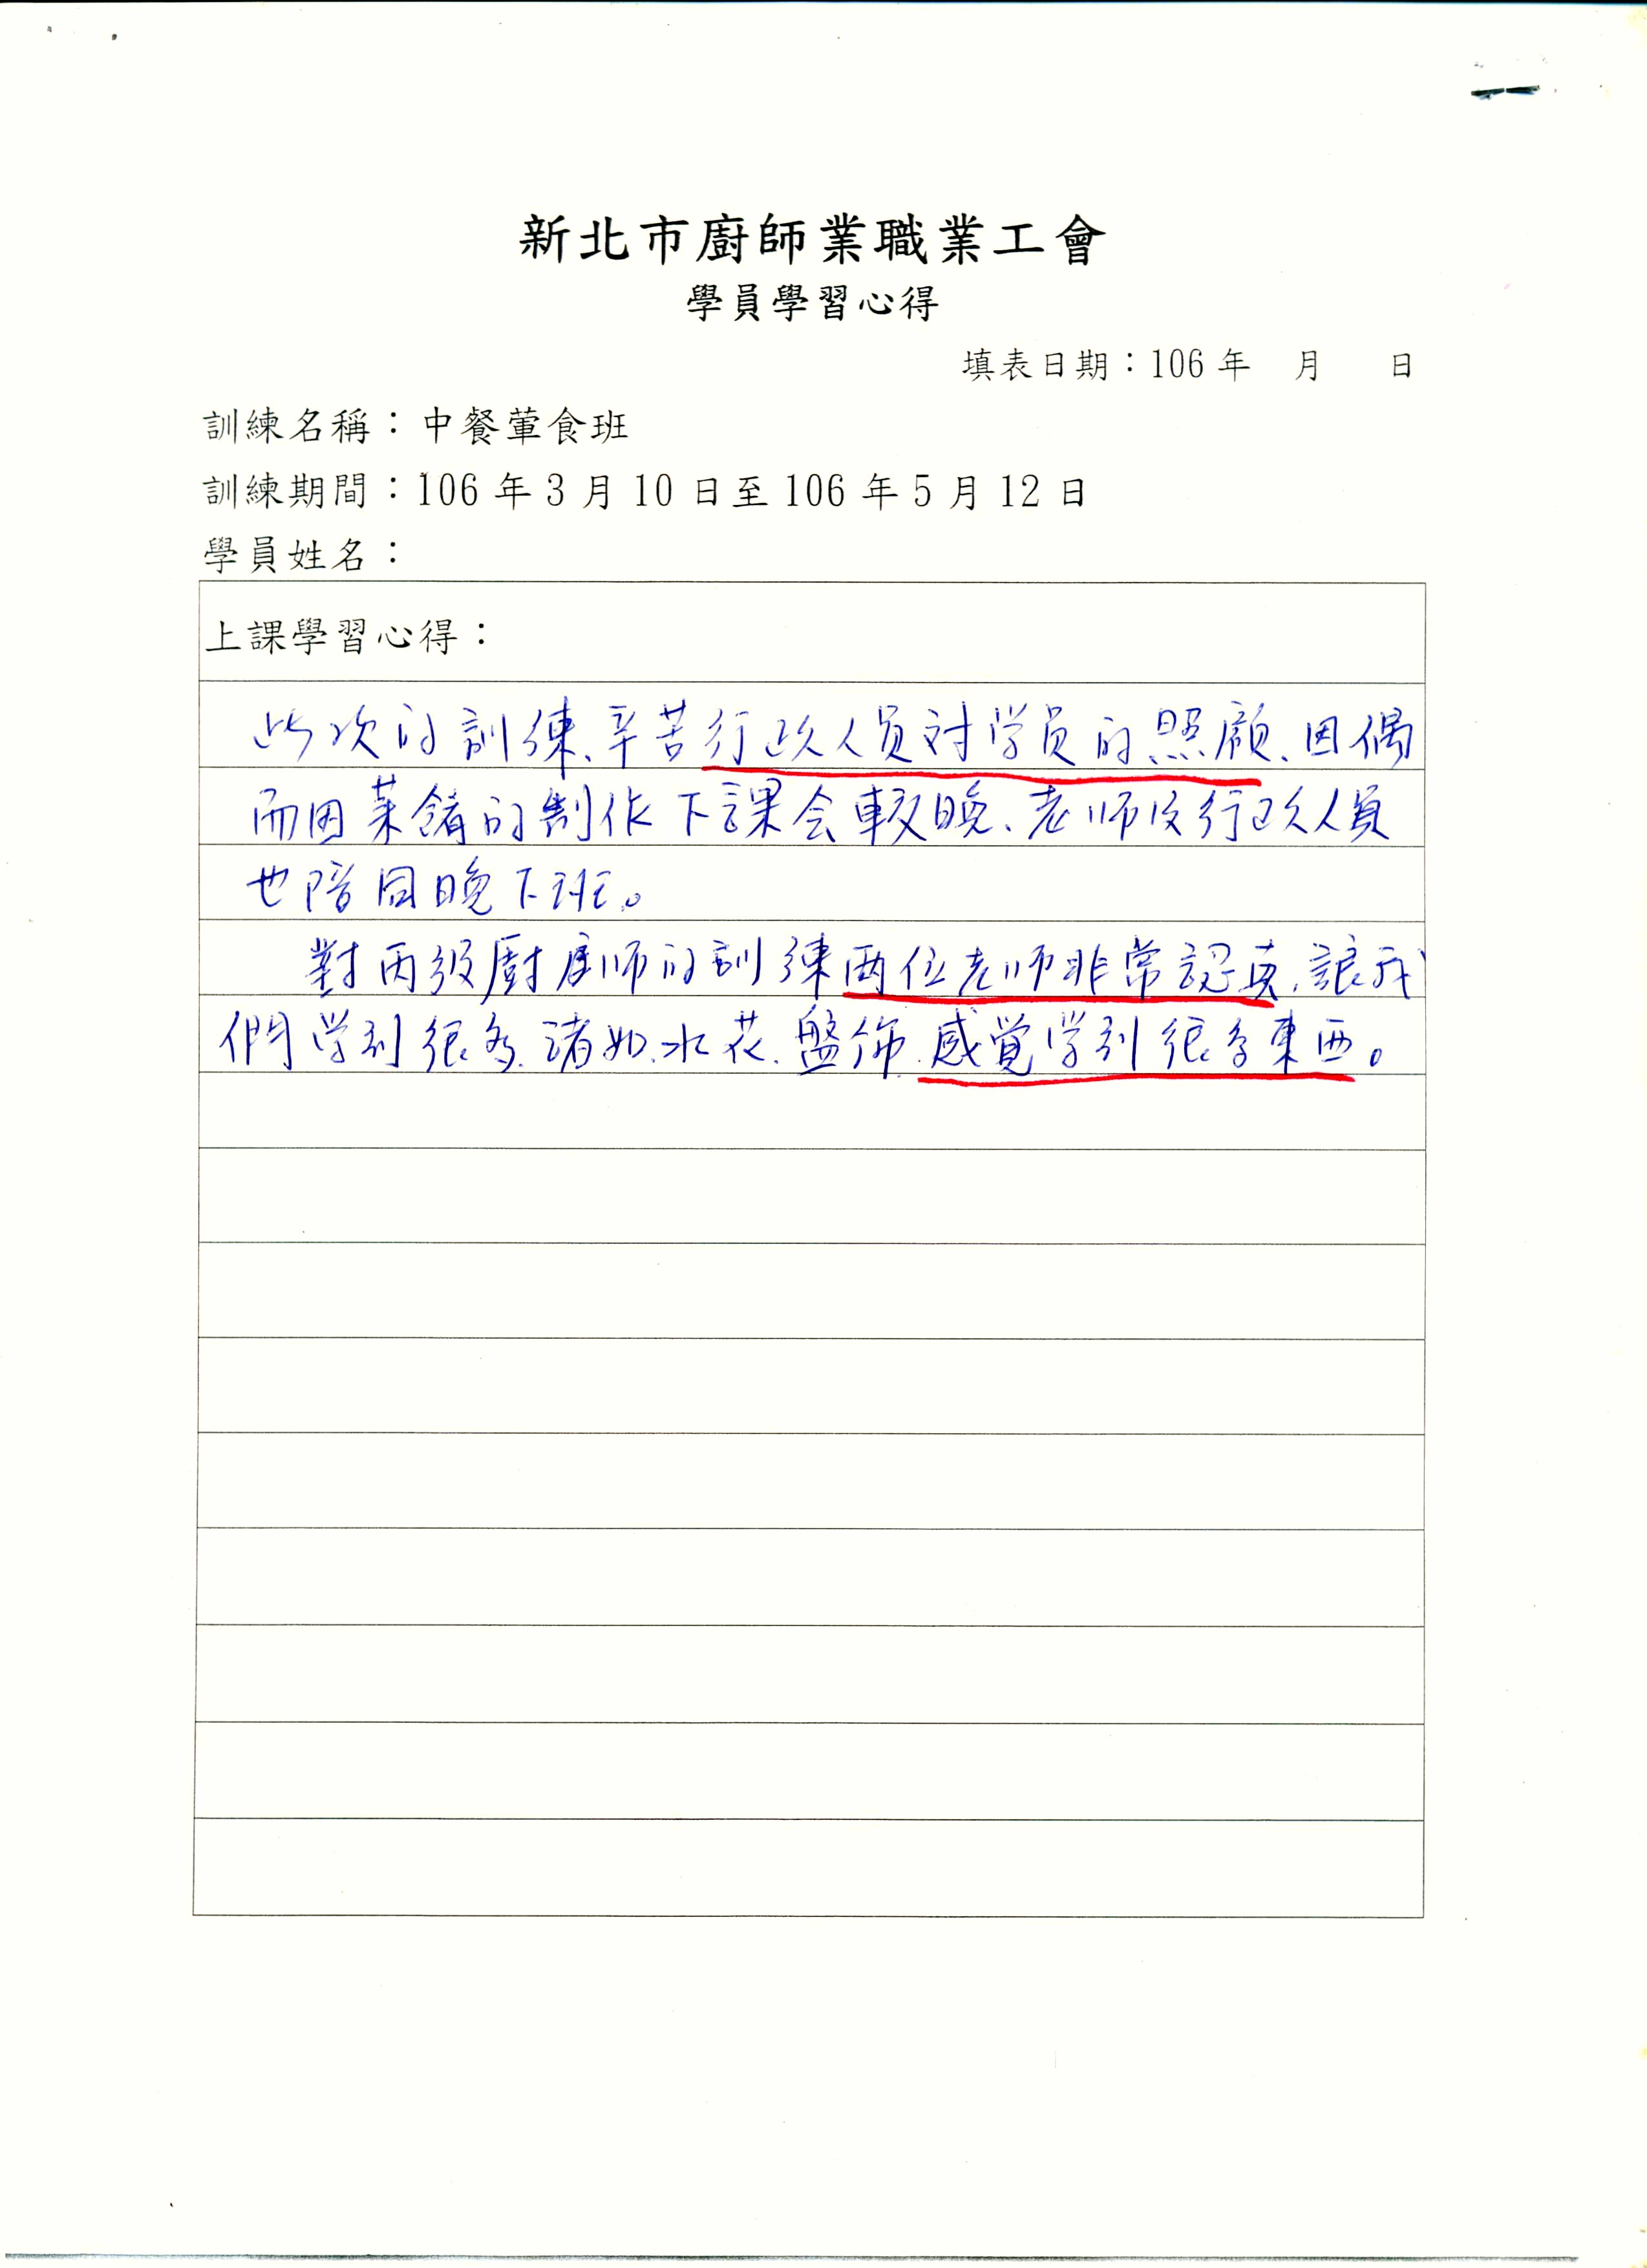 新北市廚師業職業工會
學員學習心得
填表日期：106 年 月 日
訓練名稱：中餐葷食班
訓練期間：106 年 3 月 10 日至 106 年 5 月 12 日
學員姓名：
上課學習心得：
此次的訓練、辛苦行政人員对学员的照顧、因偶
而因菜餚的制作下課会較晚、老师及行政人員
也陪同晚下班。
對丙級廚师的訓練兩位老师非常認真、讓我
們学到很多、諸如、水花、盤飾、感覚学到很多東西。